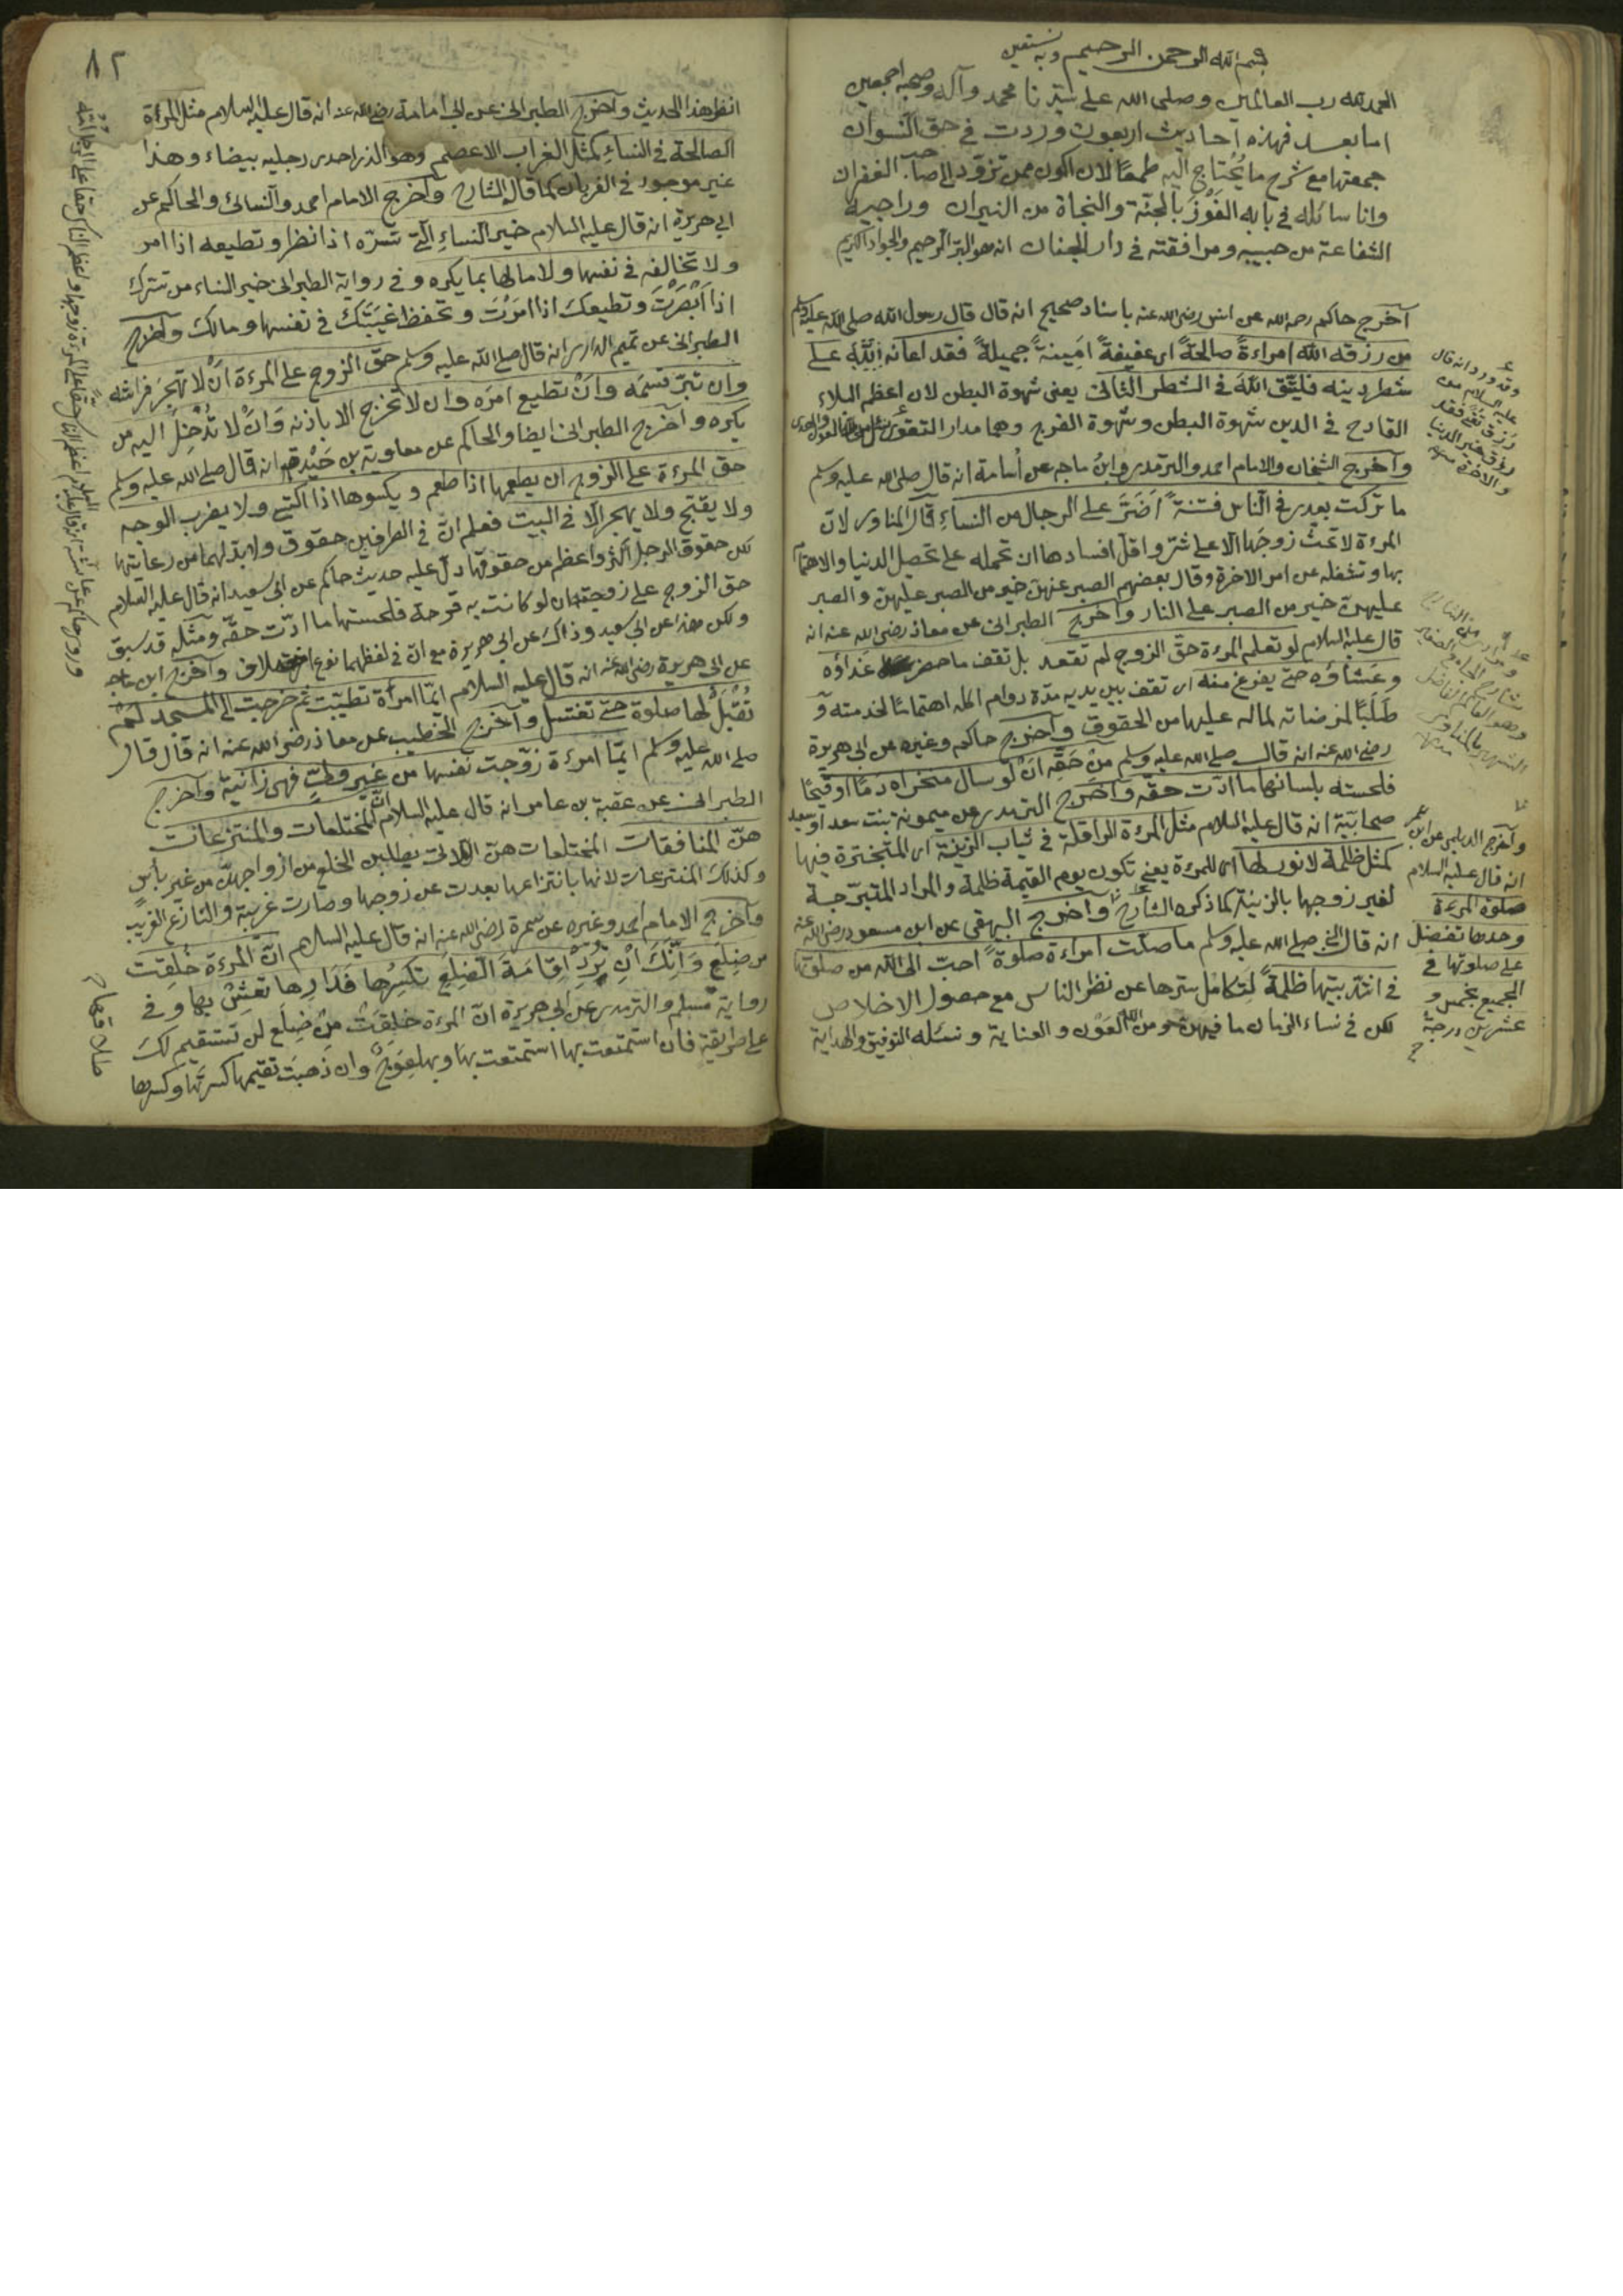 بسم الله الرحمن الرحيم وبه نستعين
الحمد لله رب العالمين وصلى الله على سيدنا محمد وآله وصحبه اجمعين
اما بعد فهذه احاديث اربعون وردت في حق النسوان
جمعتها مع شرح ما يُحْتاج اليه طمعًا لان اكون ممن تزوّد الى صاحب الغفران
وانا سائله في بابه الفَوْزَ بالجنّة والنجاة من النيران وراجيه
الشفاعة من حبيبه ومرافقته في دار الجنان انه هو البرّ الرحيم والجواد الكريم
آخرج حاكم رحمه الله عن انس رضي الله عنه باسناد صحيح انه قال قال رسول الله صلى الله عليه وسلم
من رزقه الله امراءةً صالحةً اى عفيفةً امَينةً جميلةً فقد اعانه على
شطر دينه فليتّق اللهَ في الشطر الثاني يعنى شهوة البطن لان اعظم البلاء
القادح في الدين شهوة البطن وشهوة الفرج وهما مدار التقوى
وآخرج الشيخان والامام احمد والترمذى وابن ماجه عن اُسامة انه قال صلى الله عليه وسلم
ما تركت بعدى في الناس فتنةً اَضَرَّ على الرجال من النساءِ قال المناوى لان
المرءة لا تحثّ زوجَها الا على شرّ واقلّ افسادها ان تحمله على تحصيل الدنيا والاهتمام
بها وتشغله عن امر الاخرة وقال بعضهم الصبر عنهنّ خير من الصبر عليهنّ والصبر
عليهنّ خير من الصبر على النار وآخرج الطبرانى عن معاذ رضى الله عنه انه
قال عليه السلام لو تعلم المرءة حقّ الزوج لم تقعد بل تقف ما حضر غداؤه
وعَشاؤه حتى يفرغ منه اى تقف بين يديه مدّة دوام اكله اهتمامًا لخدمته و
طَلَبًا لمرضاته لما له عليها من الحقوق وآخرج حاكم وغيره عن ابى هريرة
رضى الله عنه انه قال صلى الله عليه وسلم مِنْ حَقّه اَنْ لو سال منخراه دَمًا اوقَيْحًا
فلحسته بلسانها ما ادّت حقّه وآخرج الترمذى عن ميمونة بنت سعد او سعيد
صحابيّة انه قال عليه السلام مثل المرءة الرافلة في ثياب الزينة اى المتبخترة فيها
كمثل ظلمة لا نور لها اى المرءة يعنى تكون يوم القيمة ظلمة والمراد المتبرّجة
لغير زوجها بالزينة كما ذكره الشارح وآخرج البيهقى عن ابن مسعود رضى الله عنه
انه قال النبي صلى الله عليه وسلم ما صلّت امراءة صلوةً احبّ الى الله من صلوتها
في اشدّ بيتها ظلمةً لتكامل سترها عن نظر الناس مع حصول الاخلاص
لكن في نساء الزمان ما فيهنّ ومن الله العَوْن والعناية ونسئله التوفيق والهداية
وقد ورد انه قال
عليه السلام من
رُزِق تُقىً فقد
رُزِق خير الدنيا
والاخرة منه
ومرادى من الشارح
شارح الجامع الصغير
وهو العالم الفاضل
الشهير بالمناوى
منه
وآخرج الديلمى عن ابن عمر
انه قال عليه السلام
صلوة المرءة
وحدها تفضل
على صلوتها في
الجميع بخمس و
عشرين درجةً
٨٢
انظر هذا الحديث وآخرج الطبرانى عن ابى امامة رضى الله عنه انه قال عليه السلام مثل المرءة
الصالحة في النساءِ كمثل الغراب الاعصم وهو الذى احدى رجليه بيضاء وهذا
غير موجود في الغربان كما قال الشارح وآخرج الامام احمد والنسائى والحاكم عن
ابى هريرة انه قال عليه السلام خير النساءِ الّتى تسرّه اذا نظر وتطيعه اذا امر
ولا تخالفه في نفسها ولا مالها بما يكره وفى رواية الطبرانى خير النساء من تسّرك
اذا اَبْصَرْتَ وتطيعكَ اذا امَرْتَ وتحفظ غيبَتَكَ في نفسها ومالك وآخرج
الطبرانى عن تميم الدارى انه قال صلى الله عليه وسلم حقّ الزوج على المرءة اَنْ لا تهجر فراشه
وان تبرّ قسمَه واَنْ تطيع امرَه وان لا تخرج الا باذنه وَانْ لا تُدْخِلَ اليه من
يكره وآخرج الطبرانى ايضا والحاكم عن معاوية بن حَيْدة انه قال صلى الله عليه وسلم
حق المرءة على الزوج ان يطعمها اذا طعم ويكسوها اذا اكتسى ولا يضرب الوجه
ولا يقبّح ولا يهجر الّا في البيت فعلم انّ في الطرفين حقوق ولا بدّ لهما من رعايتها
لكن حقوق الرجل اكثر واعظم من حقوقها دلّ عليه حديث حاكم عن ابى سعيد انه قال عليه السلام
حق الزوج على زوجته ان لو كانت به قرحة فلحستها ما ادّت حقّه ومثله قد سبق
ولكن هذا عن ابى سعيد وذاك عن ابى هريرة مع انّ في لفظهما نوع اختلاف وآخرج ابن ماجه
عن ابى هريرة رضى الله عنه انه قال عليه السلام ايّما امرأة تطيّبت ثم خرجت الى المسجد لَمْ
تُقْبَلْ لها صلوة حتى تغتسل وآخرج الخطيب عن معاذ رضى الله عنه انه قال قال
صلى الله عليه وسلم ايّما امرءة زوّجت نفسها من غير ولىّ فهى زانية وآخرج
الطبرانى عن عقبة بن عامر انه قال عليه السلام ان المختلعات والمنتزعات
هنّ المنافقات المختلعات هنّ اللاتى يطلبن الخلع من ازواجهنّ من غير بأس
وكذلك المنتزعات لانها بانتزاعها بعدت عن زوجها وصارت غريبة والنازع الغريب
وآخرج الامام احمد وغيره عن سمرة رضى الله عنه انه قال عليه السلام انّ المرءة خُلِقت
من ضِلَعٍ وَاِنَّكَ اِنْ تُرِدْ اِقامَةَ الضِلَعِ تكسِرُها فَدارِها تعِشْ بها وفى
رواية مسلم والترمذى عن ابى هريرة انّ المرءة خلِقَتْ مِنْ ضِلَع لن تستقيم لكَ
على طريقةٍ فان استمتعت بها استمتعت بهَا وبها عِوَجٌ وان ذهبَت تقيمها كسرتَها وكسرها
طلاقها
وروى حاكم عن عائشة انه قال عليه السلام اعظم الناس حقًّا على المرءة زوجها واعظم الناس حقّا على الرجل اُمّه